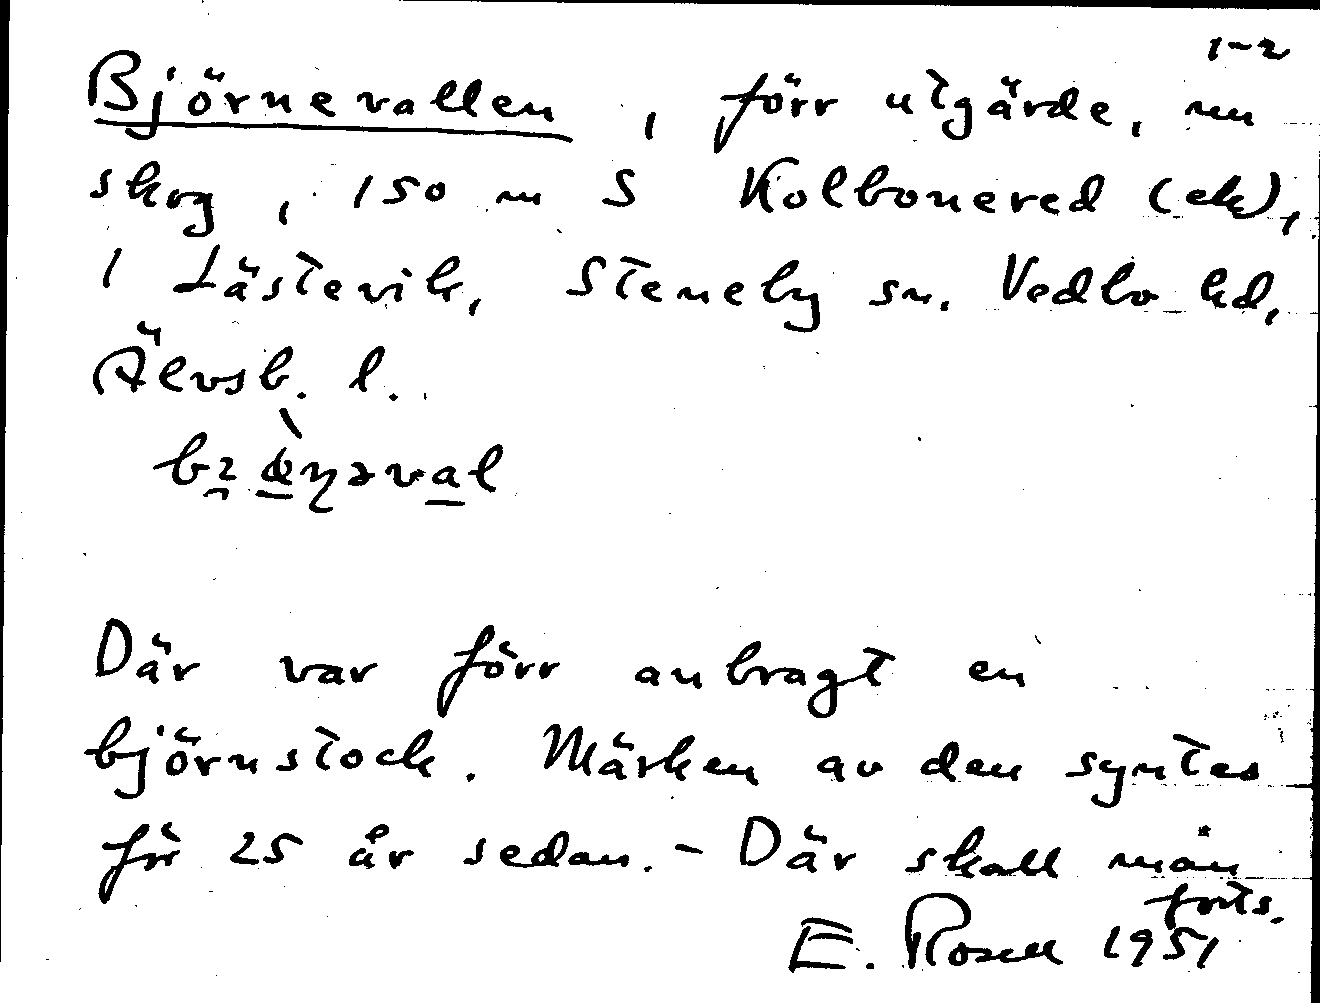 1-2
Björnevallen, förr utgärde, nu
skog, 150 m S Kolbonered (ek),
i Lästevik, Steneby sn. Vedbo hd,
Älvsb. l.
Där var förr anbragt en
björnstock. Märken av den syntes
för 25 år sedan. - Där skall man
forts.
E. Rosell 1951